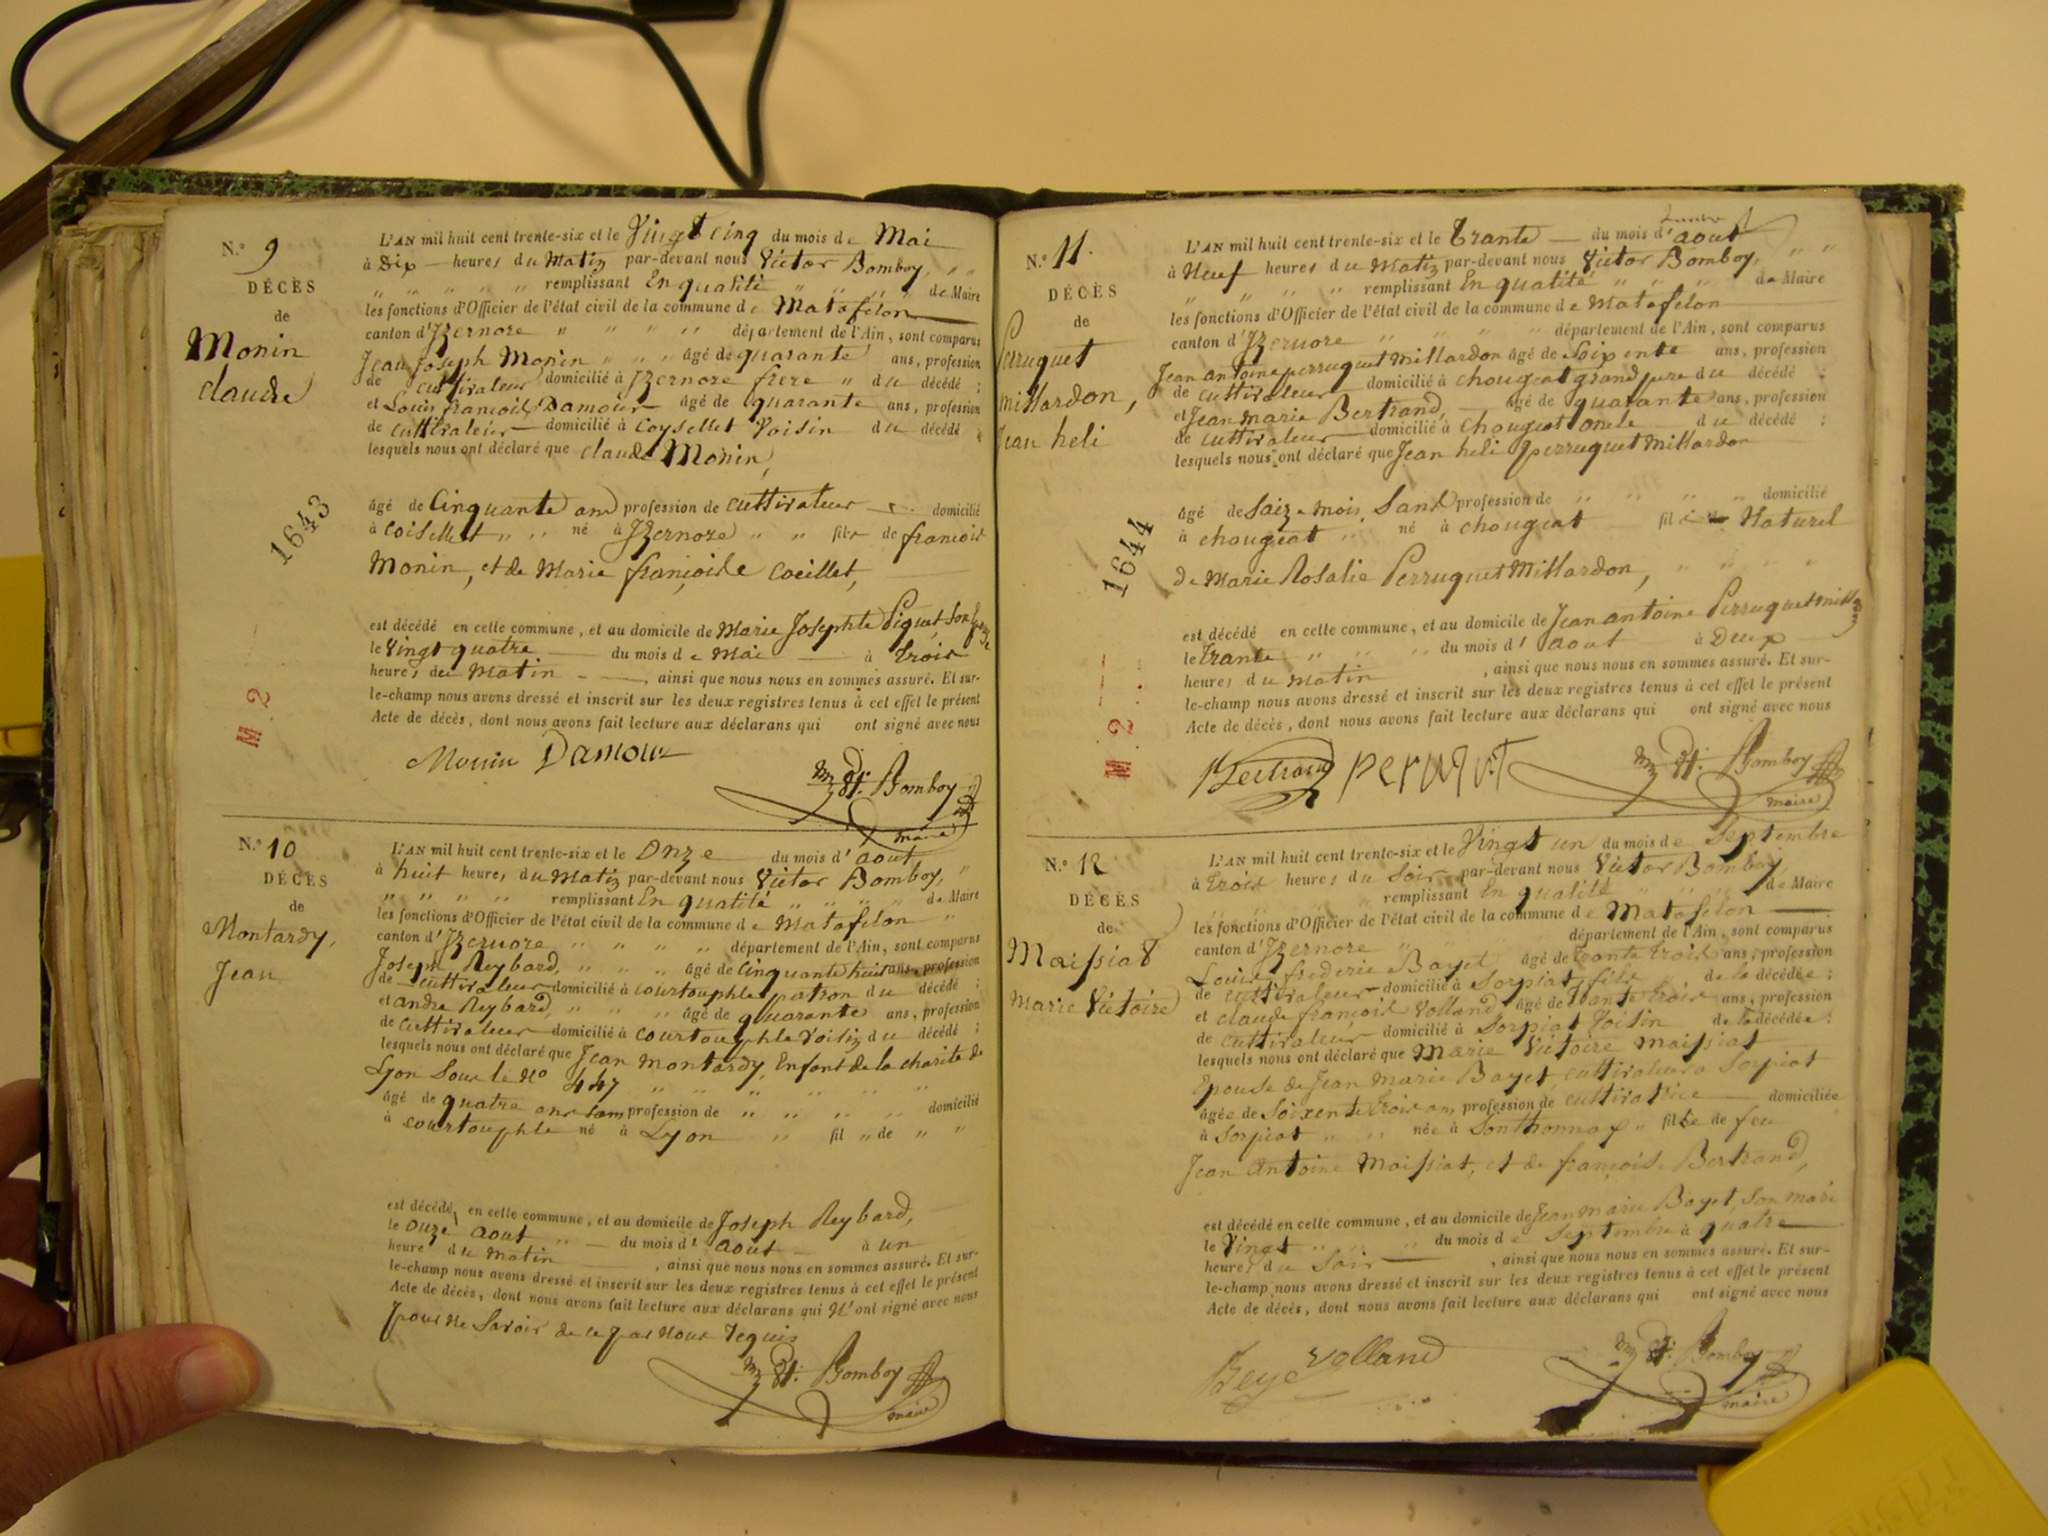 N.º 9
DÉCÈS
de
Monin
claude
1643
M. 2
L'AN mil huit cent trente-six et le Vingt cinq du mois de Mai
à Dix heures du Matin par-devant nous Victor Bomboy,
remplissant En qualité de Maire
les fonctions d'Officier de l'état civil de la commune de Matafelon
canton d'Izernore département de l'Ain, sont comparus
Jean Joseph Monin âgé de quarante ans, profession
de cultivateur domicilié à Izernore frere du décédé ;
et Louis françois Damour âgé de quarante ans, profession
de cultivateur domicilié à Coysellet Voisin du décédé ;
lesquels nous ont déclaré que claude Monin,
âgé de Cinquante ans profession de cultivateur domicilié
à Coisellet né à Izernore fils de françois
Monin, et de Marie françoise Coeillet,
est décédé en cette commune, et au domicile de Marie Josephte Piquet Son
le Vingt quatre du mois de Mai à Trois
heures du Matin, ainsi que nous nous en sommes assuré. Et sur-
le-champ nous avons dressé et inscrit sur les deux registres tenus à cet effet le présent
Acte de décès, dont nous avons fait lecture aux déclarans qui ont signé avec nous
Monin Damour
Bomboy
maire
N.º 10
DÉCÈS
de
Montardy,
Jean
L'AN mil huit cent trente-six et le Onze du mois d'aout,
à huit heures du Matin par-devant nous Victor Bomboy,
remplissant En qualité de Maire
les fonctions d'Officier de l'état civil de la commune de Matafelon
canton d'Izernore département de l'Ain, sont comparus
Joseph Reybard, âgé de Cinquante huit ans, profession
de cultivateur domicilié à courtouphle patron du décédé ;
et andre Reybard, âgé de quarante ans, profession
de cultivateur domicilié à courtouphle Voisin du décédé ;
lesquels nous ont déclaré que Jean Montardy, Enfant de la charite de
Lyon Sous le No 447
âgé de quatre ans sans profession de domicilié
à courtouphle né à Lyon fil de
est décédé en cette commune, et au domicile de Joseph Reybard,
le Onze aout du mois d'aout à un
heure du matin, ainsi que nous nous en sommes assuré. Et sur-
le-champ nous avons dressé et inscrit sur les deux registres tenus à cet effet le présent
Acte de décès, dont nous avons fait lecture aux déclarans qui N'ont signé avec nous
pour Ne Savoir de ce par Nous Requis
Bomboy
maire
N.º 11.
DÉCÈS
de
Perruquet
millardon,
Jean heli
1644
M. 2
L'AN mil huit cent trente-six et le Trante du mois d'aout
à Neuf heures du Matin par-devant nous Victor Bomboy,
remplissant En qualité de Maire
les fonctions d'Officier de l'état civil de la commune de Matafelon
canton d'Izernore département de l'Ain, sont comparus
Jean antoine perruquet millardon âgé de Soixente ans, profession
de cultivateur domicilié à chougeat grand pere du décédé ;
et Jean marie Bertrand, âgé de quarante ans, profession
de cultivateur domicilié à chougeat oncle du décédé ;
lesquels nous ont déclaré que Jean heli perruquet millardon
âgé de Saize mois, Sans profession de domicilié
à chougeat né à chougeat fils Naturel
de Marie Rosalie Perruquet Millardon,
est décédé en cette commune, et au domicile de Jean antoine Perruquet
le Trante du mois d'aout à Deux
heures du matin, ainsi que nous nous en sommes assuré. Et sur-
le-champ nous avons dressé et inscrit sur les deux registres tenus à cet effet le présent
Acte de décès, dont nous avons fait lecture aux déclarans qui ont signé avec nous
Bertrand
Bomboy
maire
N.º 12
DÉCÈS
de
Maissiat
Marie Victoire
L'AN mil huit cent trente-six et le Vingt un du mois de Septembre
à Trois heures du Soir par-devant nous Victor Bomboy,
remplissant En qualité de Maire
les fonctions d'Officier de l'état civil de la commune de Matafelon
canton d'Izernore département de l'Ain, sont comparus
Louis frederic Bayet âgé de trante trois ans, profession
de cultivateur domicilié à Sorpiat fils de la décédée ;
et claude françois Volland âgé de trante trois ans, profession
de cultivateur domicilié à Sorpiat Voisin de la décédée ;
lesquels nous ont déclaré que Marie Victoire Maissiat
Epouse de Jean Marie Bayet cultivateur a Sorpiat
âgée de Soixente trois ans profession de cultivatrice domiciliée
à Sorpiat née à Sonthonnax fille de feu
Jean Antoine Maissiat, et de françoise Bertrand,
est décédé en cette commune, et au domicile de Jean Marie Bayet, Son mari
le Vingt du mois de Septembre à quatre
heures du Soir, ainsi que nous nous en sommes assuré. Et sur-
le-champ nous avons dressé et inscrit sur les deux registres tenus à cet effet le présent
Acte de décès, dont nous avons fait lecture aux déclarans qui ont signé avec nous
Volland
Bomboy
maire